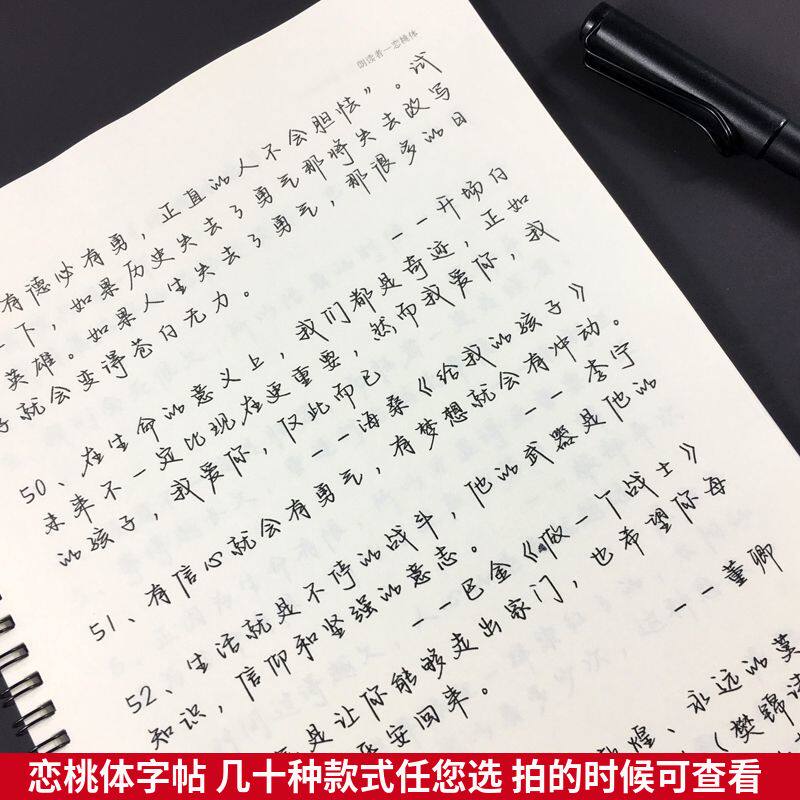 朗读者—恋桃体
有德必有勇，正直的人不会胆怯”。试
下，如果历史失去了勇气那将失去改写
英雄。如果人生失去了勇气，那很多的日
子就会变得苍白无力。
——开场白
50、在生命的意义上，我们都是奇迹，正如
未来不一定比现在更重要，然而我爱你，我
的孩子，我爱你，仅此而已
——海桑《给我的孩子》
51、有信心就会有勇气，有梦想就会有冲动。
——李宁
52、生活就是不停的战斗，他的武器是他的
知识，信仰和坚强的意志。
——巴金《做一个战士》
是让你能够走出家门，也希望你每
安回来。
——董卿
煌、永远的莫
（樊锦诗
恋桃体字帖 几十种款式任您选 拍的时候可查看